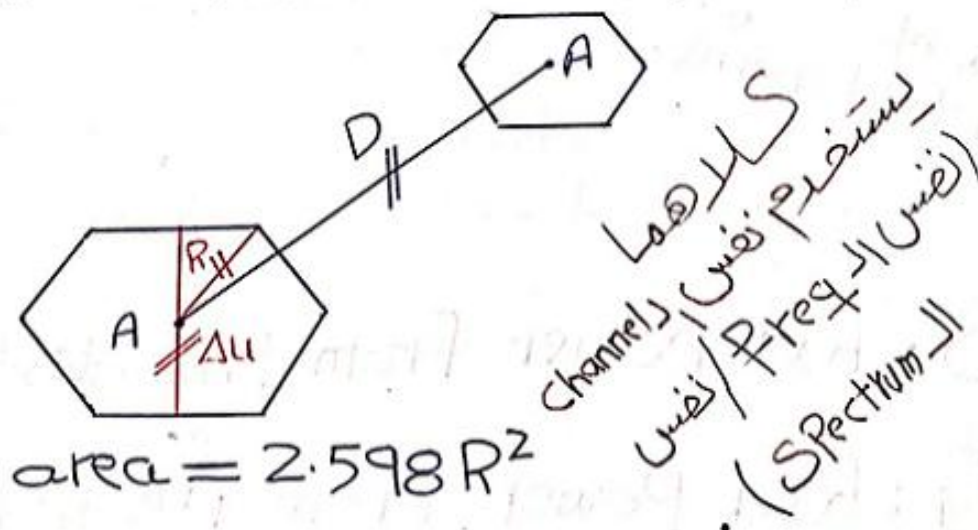 A
D
R
A
Δu
area = 2.598 R²
كلاهما
يستخدم نفس الـ channels
(نفس الـ freq / نفس
الـ Spectrum).